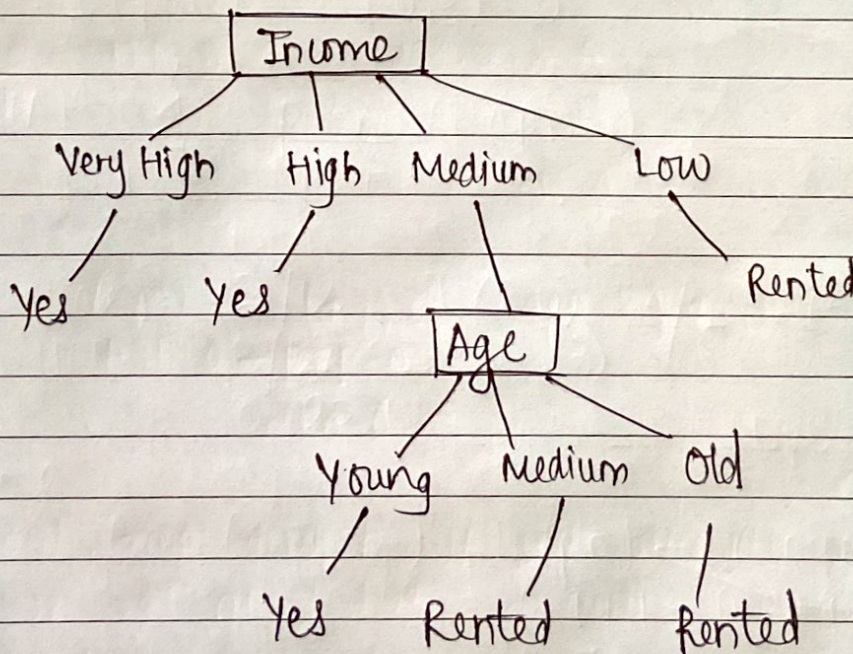 Income
Very High High Medium Low
Yes Yes Rented
Age
Young Medium Old
Yes Rented Rented